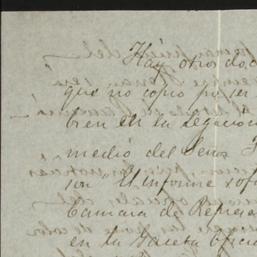 Hay otros doc
que no copio por ser
bien en la legacion
medio del Señor
son "El informe
Camara de Represe
en la Gaceta Oficia